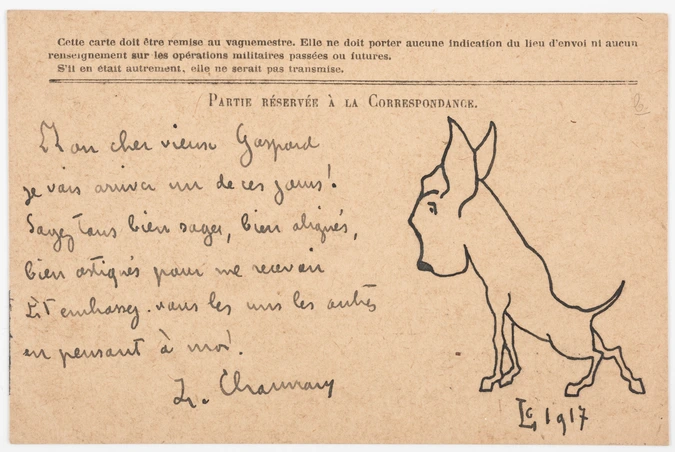 Cette carte doit être remise au vaguemestre. Elle ne doit porter aucune indication du lieu d'envoi ni aucun
renseignement sur les opérations militaires passées ou futures.
S'il en était autrement, elle ne serait pas transmise.
PARTIE RÉSERVÉE À LA CORRESPONDANCE.
Mon cher vieux Gaspard
je vais arriver un de ces jours!
Soyez tous bien sages, bien alignés,
bien astiqués pour me recevoir
Et embrassez-vous les uns les autres
en pensant à moi.
LC 1917